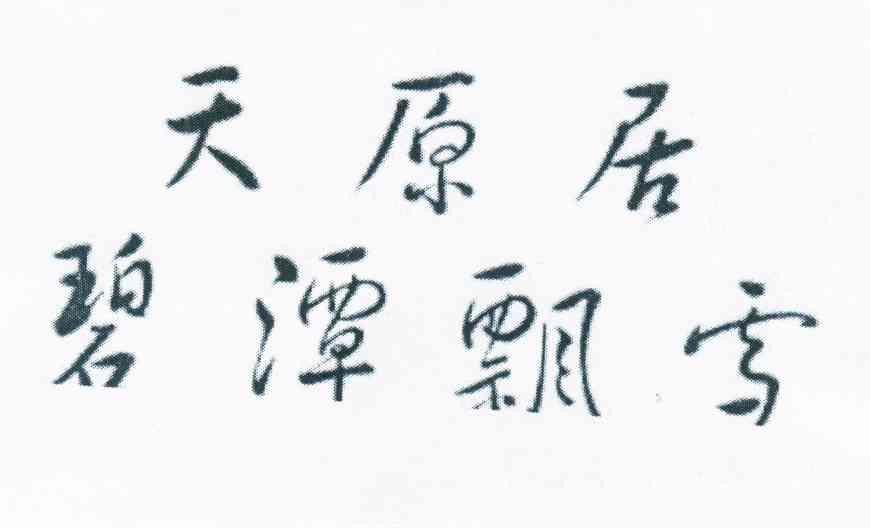 天原居
碧潭飘雪